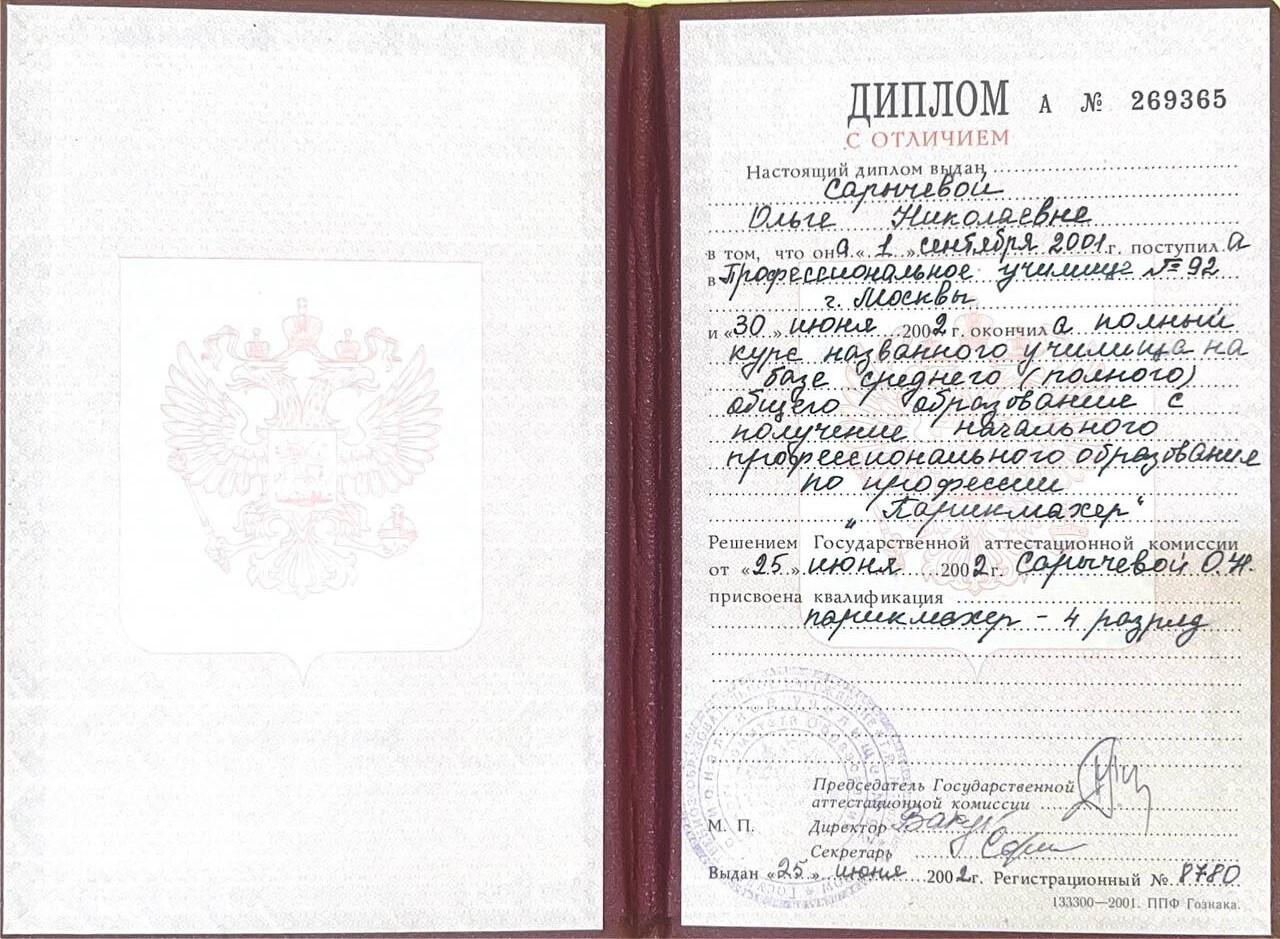 ДИПЛОМ А № 269365
С ОТЛИЧИЕМ
Настоящий диплом выдан
Сарычевой
Ольге Николаевне
в том, что она «1» сентября 2001 г. поступила
в Профессиональное училище № 92
г. Москвы
и «30» июня 2002 г. окончила полный
курс названного училища на
базе среднего (полного)
общего образования с
получение начального
профессионального образование
по профессии
"Парикмахер"
Решением Государственной аттестационной комиссии
от «25» июня 2002 г. Сарычевой О.Н.
присвоена квалификация
парикмахер - 4 разряд
Председатель Государственной
аттестационной комиссии
М. П. Директор
Секретарь
Выдан «25» июня 2002 г. Регистрационный № 8780
133300—2001. ППФ Гознака.